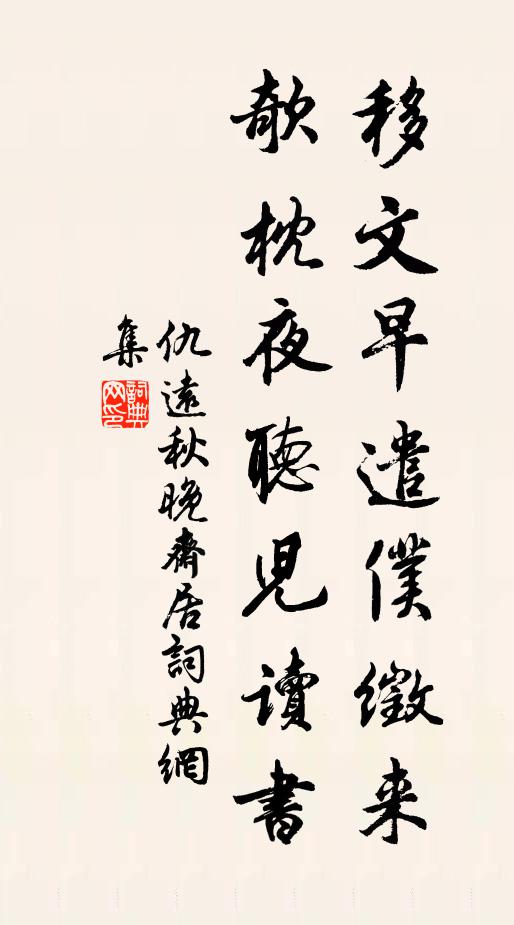 移文早遣僕徵来
欹枕夜聽児讀書
仇遠秋晚齋居詞典網
集
詞典網印